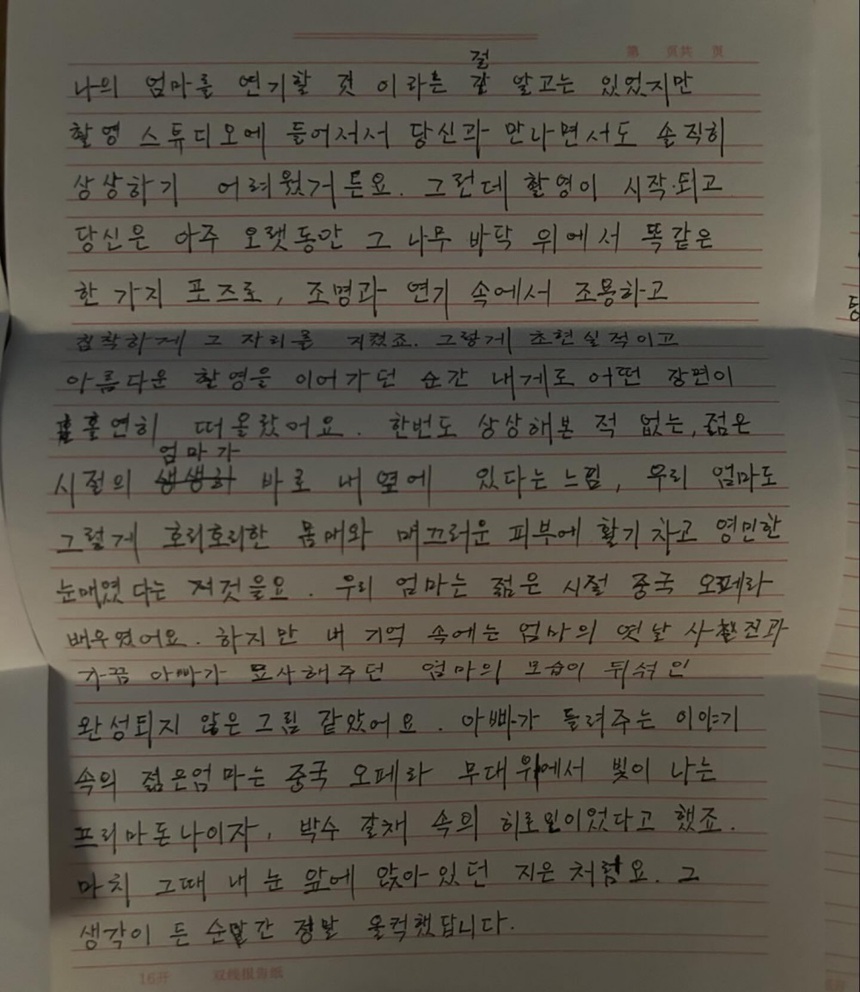 第 页共 页
절
나의 엄마를 연기할 것 이라는 잘 알고는 있었지만
촬영 스튜디오에 들어서서 당신과 만나면서도 솔직히
상상하기 어려웠거든요. 그런데 촬영이 시작되고
당신은 아주 오랫동안 그 나무 바닥 위에서 똑같은
한 가지 포즈로, 조명과 연기 속에서 조용하고
침착하게 그 자리를 지켰죠. 그렇게 초현실적이고
아름다운 촬영을 이어가던 순간 내게도 어떤 장면이
홀연히 떠올랐어요. 한번도 상상해본 적 없는, 젊은
엄마가
시절의 생생히 바로 내 옆에 있다는 느낌, 우리 엄마도
그렇게 호리호리한 몸매와 매끄러운 피부에 활기차고 영민한
눈매였다는 저것을요. 우리 엄마는 젊은 시절 중국 오페라
배우였어요. 하지만 내 기억 속에는 엄마의 옛날 사촬진과
가끔 아빠가 묘사해주던 엄마의 모습이 뒤섞인
완성되지 않은 그림 같았어요. 아빠가 들려주는 이야기
속의 젊은엄마는 중국 오페라 무대 위에서 빛이 나는
프리마돈나이자, 박수 갈채 속의 히로인이었다고 했죠.
마치 그때 내 눈 앞에 앉아있던 지은처럼요. 그
생각이 든 순말간 정말 울컥했답니다.
16开 双线报告纸